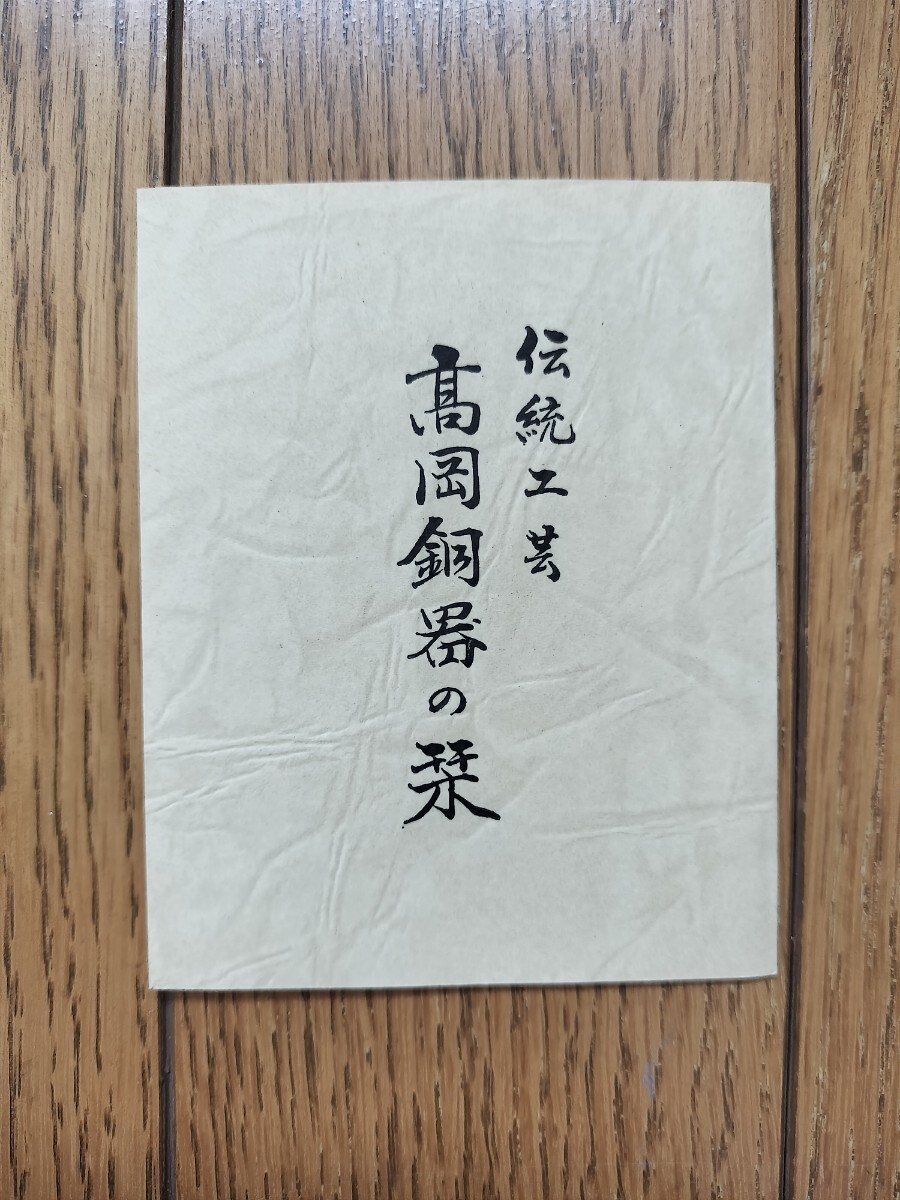 伝統工芸
髙岡銅器の栞